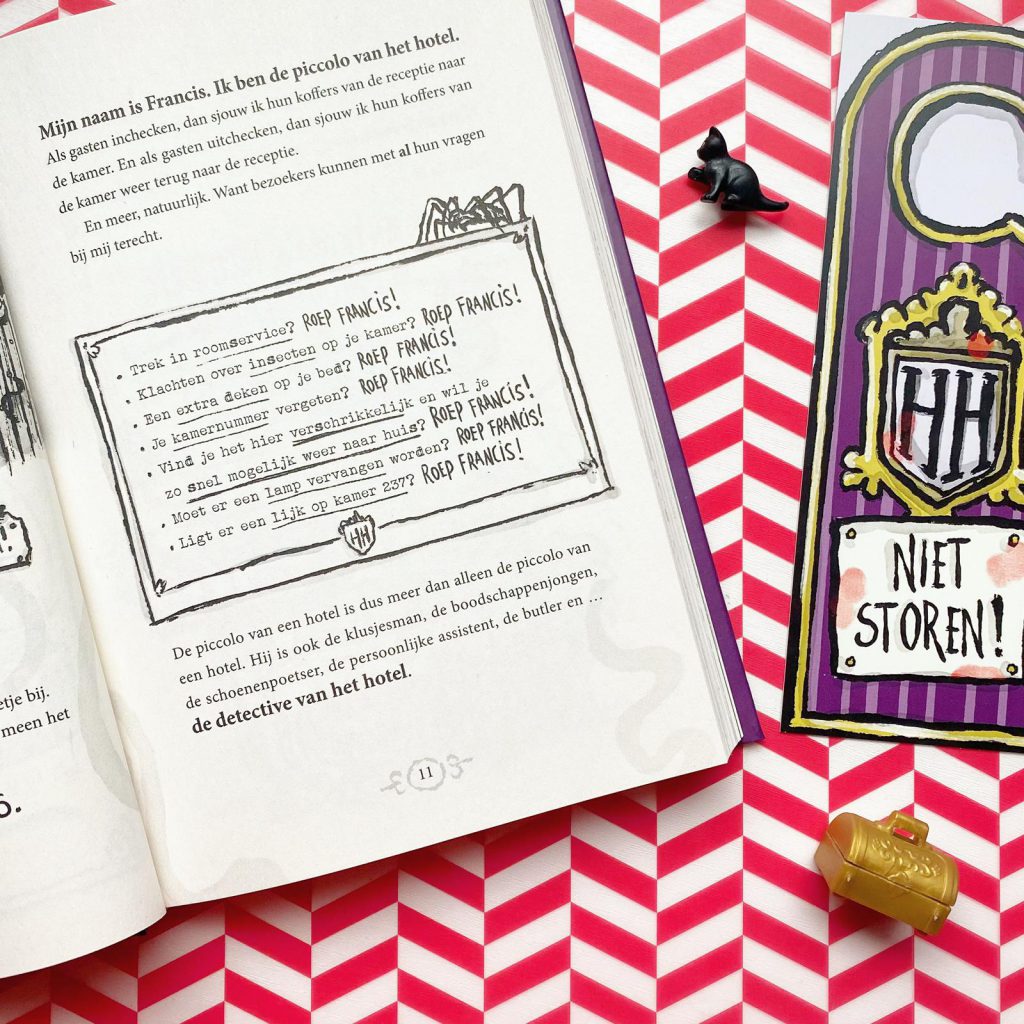 Mijn naam is Francis. Ik ben de piccolo van het hotel.
Als gasten inchecken, dan sjouw ik hun koffers van de receptie naar
de kamer. En als gasten uitchecken, dan sjouw ik hun koffers van
de kamer weer terug naar de receptie.
En meer, natuurlijk. Want bezoekers kunnen met al hun vragen
bij mij terecht.
• Trek in roomservice? ROEP FRANCIS!
• Klachten over insecten op je kamer? ROEP FRANCIS!
• Een extra deken op je bed? ROEP FRANCIS!
• Je kamernummer vergeten? ROEP FRANCIS!
• Vind je het hier verschrikkelijk en wil je
zo snel mogelijk weer naar huis? ROEP FRANCIS!
• Moet er een lamp vervangen worden? ROEP FRANCIS!
• Ligt er een lijk op kamer 237? ROEP FRANCIS!
HH
De piccolo van een hotel is dus meer dan alleen de piccolo van
een hotel. Hij is ook de klusjesman, de boodschappenjongen,
de schoenenpoetser, de persoonlijke assistent, de butler en …
de detective van het hotel.
11
etje bij.
meen het
6.
HH
NIET
STOREN!